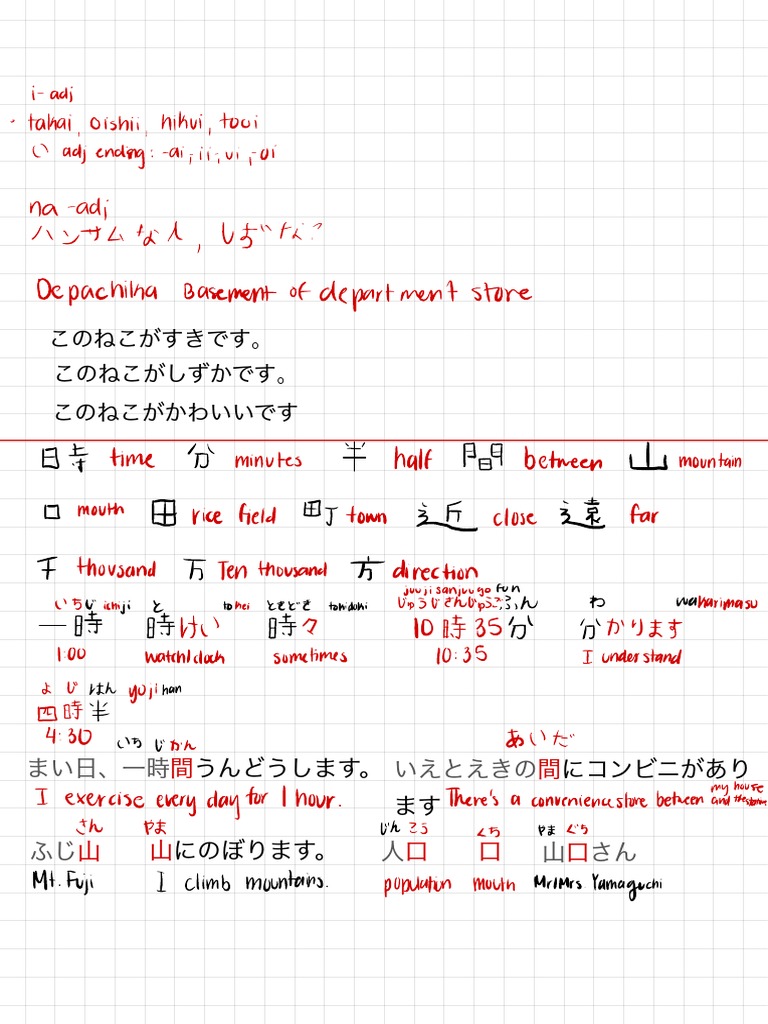 i-adj
takai, oishii, hikui, tooi
い adj ending: -ai, -ii, -ui, -oi
na-adj
ハンサムな人,
Depachika Basement of department store
このねこがすきです。
このねこがしずかです。
このねこがかわいいです
時 time 分 minutes 半 half 間 between 山 mountain
口 mouth 田 rice field 町 town 近 close 遠 far
千 thousand 万 Ten thousand 方 direction
juuji sanjuugo fun
いちじ ichiji と tokei ときどき tokidoki じゅうじさんじゅうごふん わ wakarimasu
一時 時けい 時々 10時35分 分かります
1:00 watch/clock sometimes 10:35 I understand
よ じ はん yoji han
四時半
4:30
いち じ かん あいだ
まい日、一時間うんどうします。 いえとえきの間にコンビニがあり
I exercise every day for 1 hour. ます There's a convenience store between my house and the station
さん やま じんこう くち やま ぐち
ふじ山 山にのぼります。 人口 口 山口さん
Mt. Fuji I climb mountains. population mouth Mr/Mrs. Yamaguchi